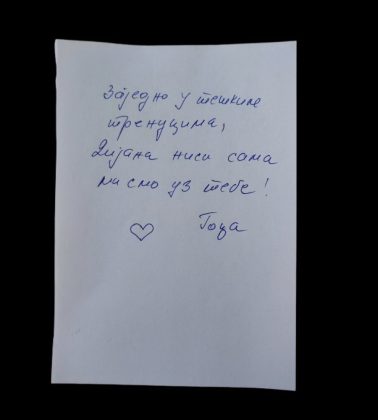 Заједно у тешким
тренуцима,
Дијана ниси сама
ми смо уз тебе!
Гоца